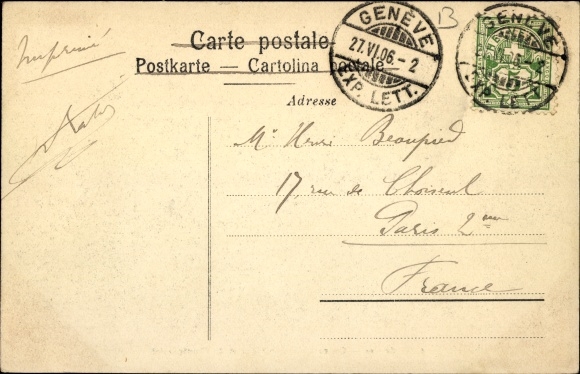 Imprimé
Carte postale
Postkarte — Cartolina postale
GENÈVE
27.VI.06.-2
EXP. LETT.
B
GENÈVE
EXP. LETT.
Adresse
Mr Henri Beaupied
17, rue de Choiseul
Paris 2me
France